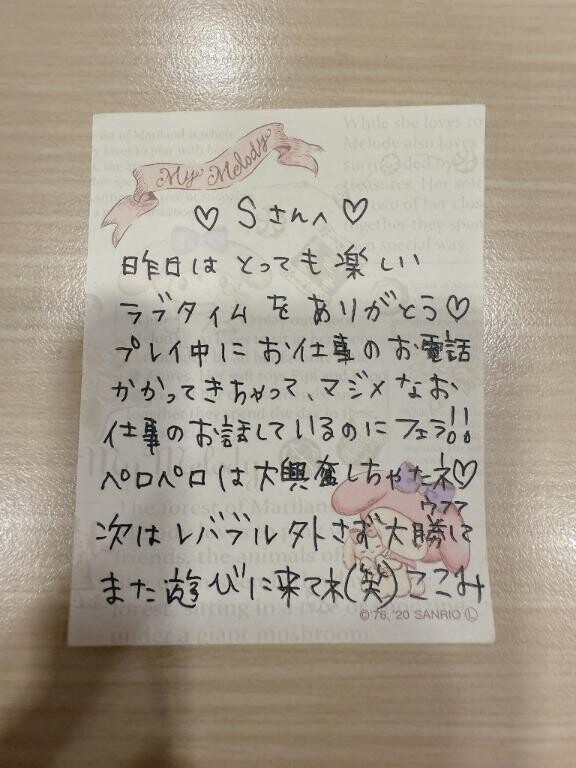 My Melody
♡ Sさんへ ♡
昨日は とっても 楽しい
ラブタイム を ありがとう♡
プレイ中に お仕事の お電話
かかってきちゃって、マジメなお
仕事の お話しているのに フェラ!!
ペロペロ は 大興奮しちゃたネ♡
ウフフ
次は レバブル 外さず 大勝して
また 遊びに来てネ(笑) ここみ
©'76, '20 SANRIO Ⓛ
While she loves to
Melody also loves
surrounded by
treasures. Her
two of her clos
together they spen
special way.
The forest of Mariland
friends, the animals of
forest, sitting in a tree
under a giant mushroom.